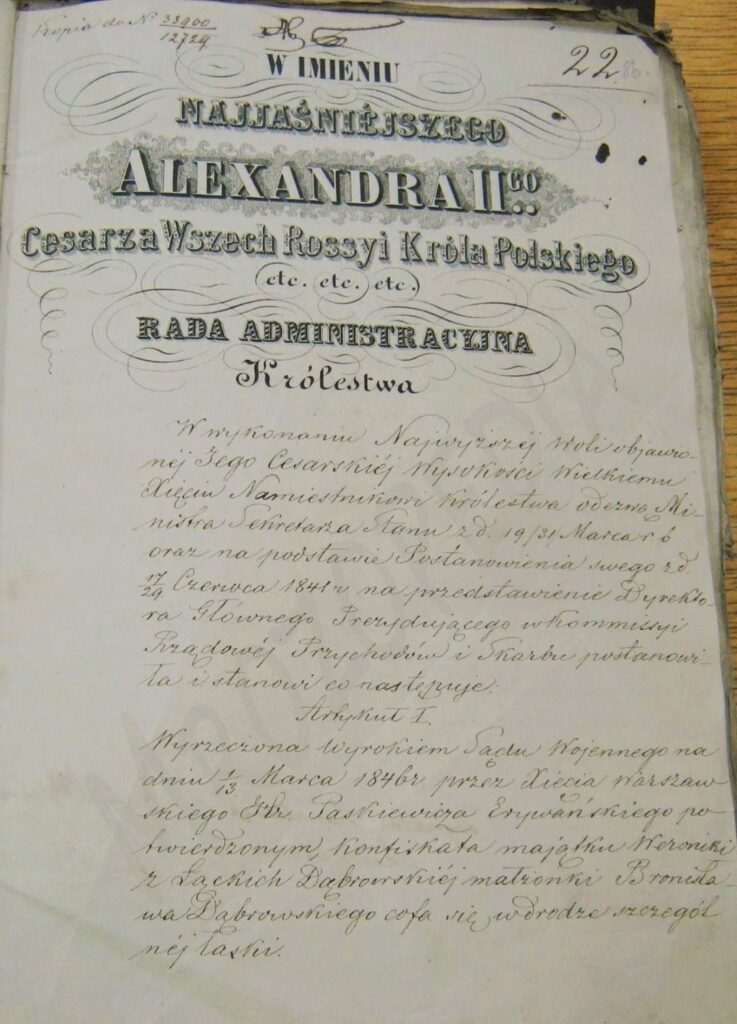 Kopia do N 33900/12729
22
W IMIENIU
NAJJAŚNIÉJSZEGO
ALEXANDRA IIGO..
Cesarza Wszech Rossyi Króla Polskiego
etc. etc. etc.
RADA ADMINISTRACYJNA
Królestwa
W wykonaniu Najwyższéj Woli objawio-
néj Jego Cesarskiéj Wysokości Wielkiemu
Xięciu Namiestnikowi Królestwa odezwą Mi-
nistra Sekretarza Stanu z d. 19/31 Marca r. b
oraz na podstawie Postanowienia swego z d.
17/29 Czerwca 1841 r na przedstawienie Dyrekto-
ra Głównego Prezydującego w Kommissyi
Rządowéj Przychodów i Skarbu postanowi-
ła i stanowi co następuje:
Artykuł I.
Wyrzeczona Wyrokiem Sądu Wojennego na
dniu 1/13 Marca 1846 r przez Xięcia Warszaw
skiego Hr. Paskiewicza Erywańskiego po
twierdzonym, konfiskata majątku Weroniki
z Łąckich Dąbrowskiéj małżonki Bronisła-
wa Dąbrowskiego cofa się w drodze szczegól
néj łaski.